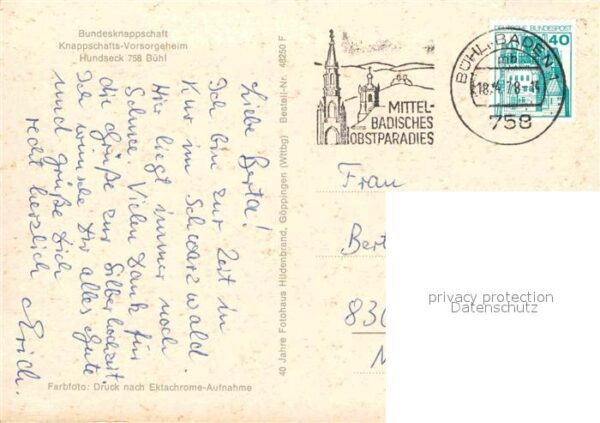 Bundesknappschaft
Knappschafts-Vorsorgeheim
Hundseck 758 Bühl
Liebe Berta!
Ich bin zur Zeit in
Kur im Schwarzwald
Hier liegt immer noch
Schnee. Vielen Dank für
die Grüße zur Silberhochzeit.
Ich wünsche Dir alles Gute.
und grüße Dich
recht herzlich
Erich.
Farbfoto: Druck nach Ektachrome-Aufnahme
40 Jahre Fotohaus Hüdenbrand, Göppingen (Wttbg) Bestell-Nr. 48250 F
MITTEL-
BADISCHES
OBSTPARADIES
BÜHL, BADEN 1
mb
18.-4.78.-
758
DEUTSCHE BUNDESPOST
40
Frau
Bert
830
privacy protection
Datenschutz